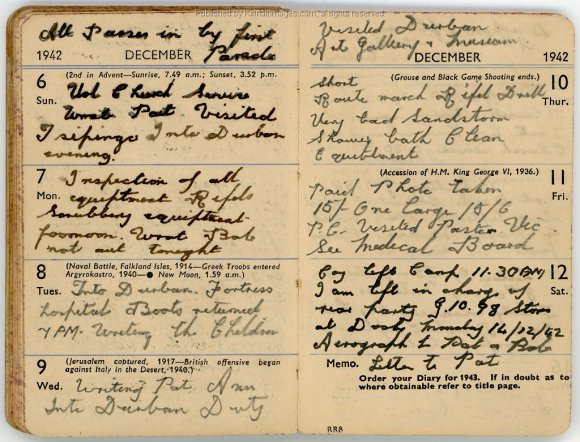 Published by Kirklandimages.com, all rights reserved.
All Passes in by first
Parade
1942 DECEMBER
6
Sun.
(2nd in Advent—Sunrise, 7.49 a.m.; Sunset, 3.52 p.m.
Vol Church Service
Wrote Pat. Visited
Isipingo Into Durban
evening.
7
Mon.
Inspection of all
equiptment Rifels
Scrubbing equiptment
forenoon. Wrot Bob
not out tonight
8
Tues.
(Naval Battle, Falkland Isles, 1914—Greek Troops entered
Argyrokastro, 1940—● New Moon, 1.59 a.m.)
Into Durban. Fortress
hospital Boots returned
7 PM. Writing the Children
9
Wed.
(Jerusalem captured, 1917—British offensive began
against Italy in the Desert, 1940.)
Writing Pat Ann
Into Durban Duty
Visited Durban
Art Gallery & Museum
DECEMBER 1942
10
Thur.
(Grouse and Black Game Shooting ends.)
Short
Route march Rifel Drill
Very bad Sandstorm
Shower bath Clean
Equiptment
11
Fri.
(Accession of H.M. King George VI, 1936.)
Paid Photo taken
15/- One large 15/6
P.C. Visited Vic
See Medical Board
12
Sat.
Coy left Camp 11.30 AM
I am left in charge of
rear party 9.10.98 Stores
at Monday 14/12/42
Aerograph to Pat & Bob
Memo. Letter to Pat
Order your Diary for 1943. If in doubt as to
where obtainable refer to title page.
RRB